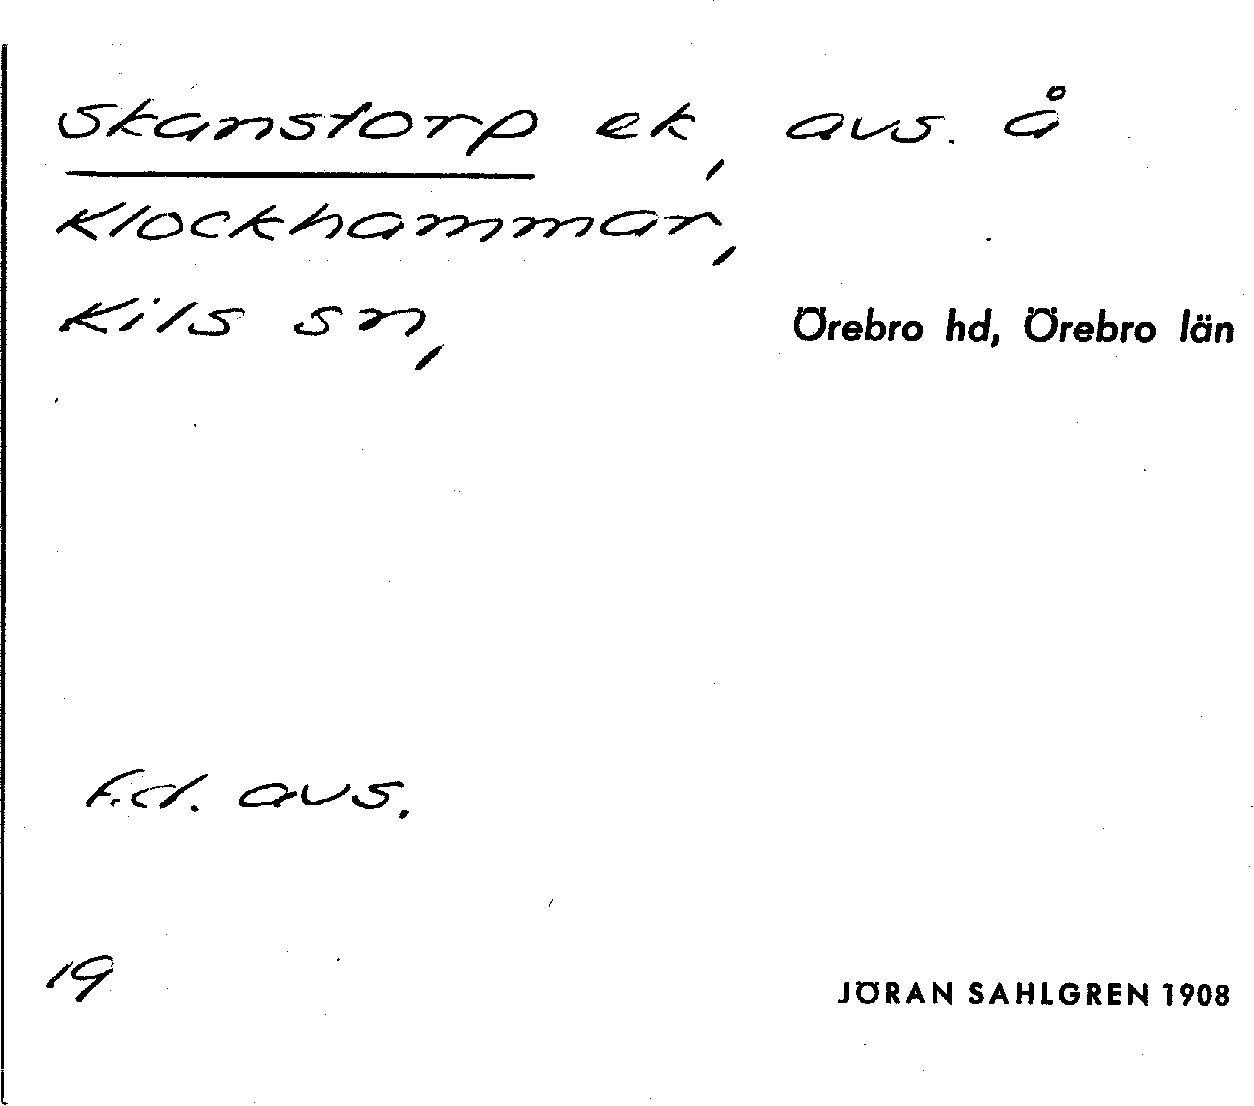 Skanstorp ek, avs. å
Klockhammar,
Kils sn, Örebro hd, Örebro län
f.d. avs.
19 JÖRAN SAHLGREN 1908